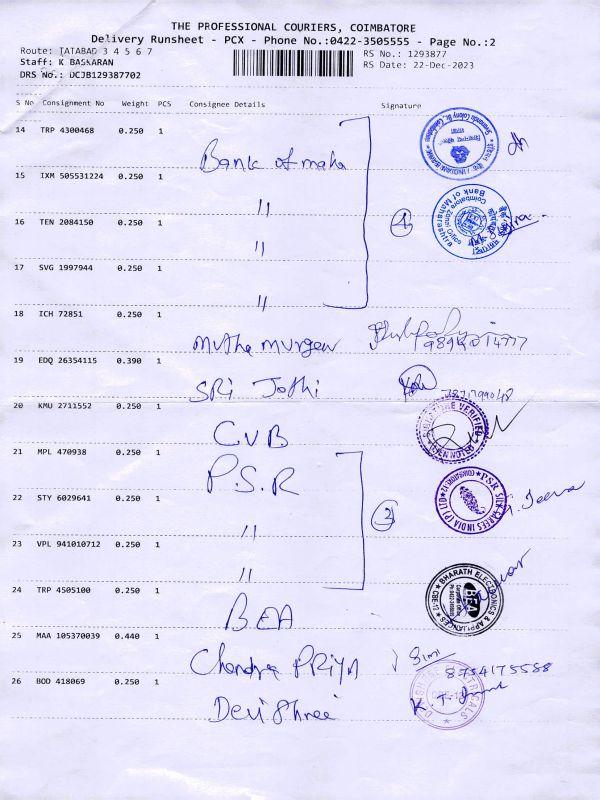 THE PROFESSIONAL COURIERS, COIMBATORE
Delivery Runsheet - PCX - Phone No.:0422-3505555 - Page No.:2
Route: TATABAD 3 4 5 6 7
RS No.: 1293877
Staff: K BASKARAN
RS Date: 22-Dec-2023
DRS No.: DCJB129387702
S No Consignment No Weight PCS Consignee Details Signature
14 TRP 4300468 0.250 1
Bank of maha
15 IXM 505531224 0.250 1
"
Coimbatore Zonal Office
Bank of Maharashtra
16 TEN 2084150 0.250 1
"
17 SVG 1997944 0.250 1
"
18 ICH 72851 0.250 1
Muthu murgan
19 EDQ 26354115 0.390 1
SRi Jothi
20 KMU 2711552 0.250 1
CVB
SIGNATURE VERIFIED
21 MPL 470938 0.250 1
P.S.R
P.S.R SILK SAREES INDIA (P) LTD
COIMBATORE-12
22 STY 6029641 0.250 1
"
23 VPL 941010712 0.250 1
"
24 TRP 4505100 0.250 1
BEA
BHARATH ELECTRONICS & APPLIANCES
CBE-12
BEA
25 MAA 105370039 0.440 1
Chandra PRIYA
8754175588
26 BOD 418069 0.250 1
Devi Shree